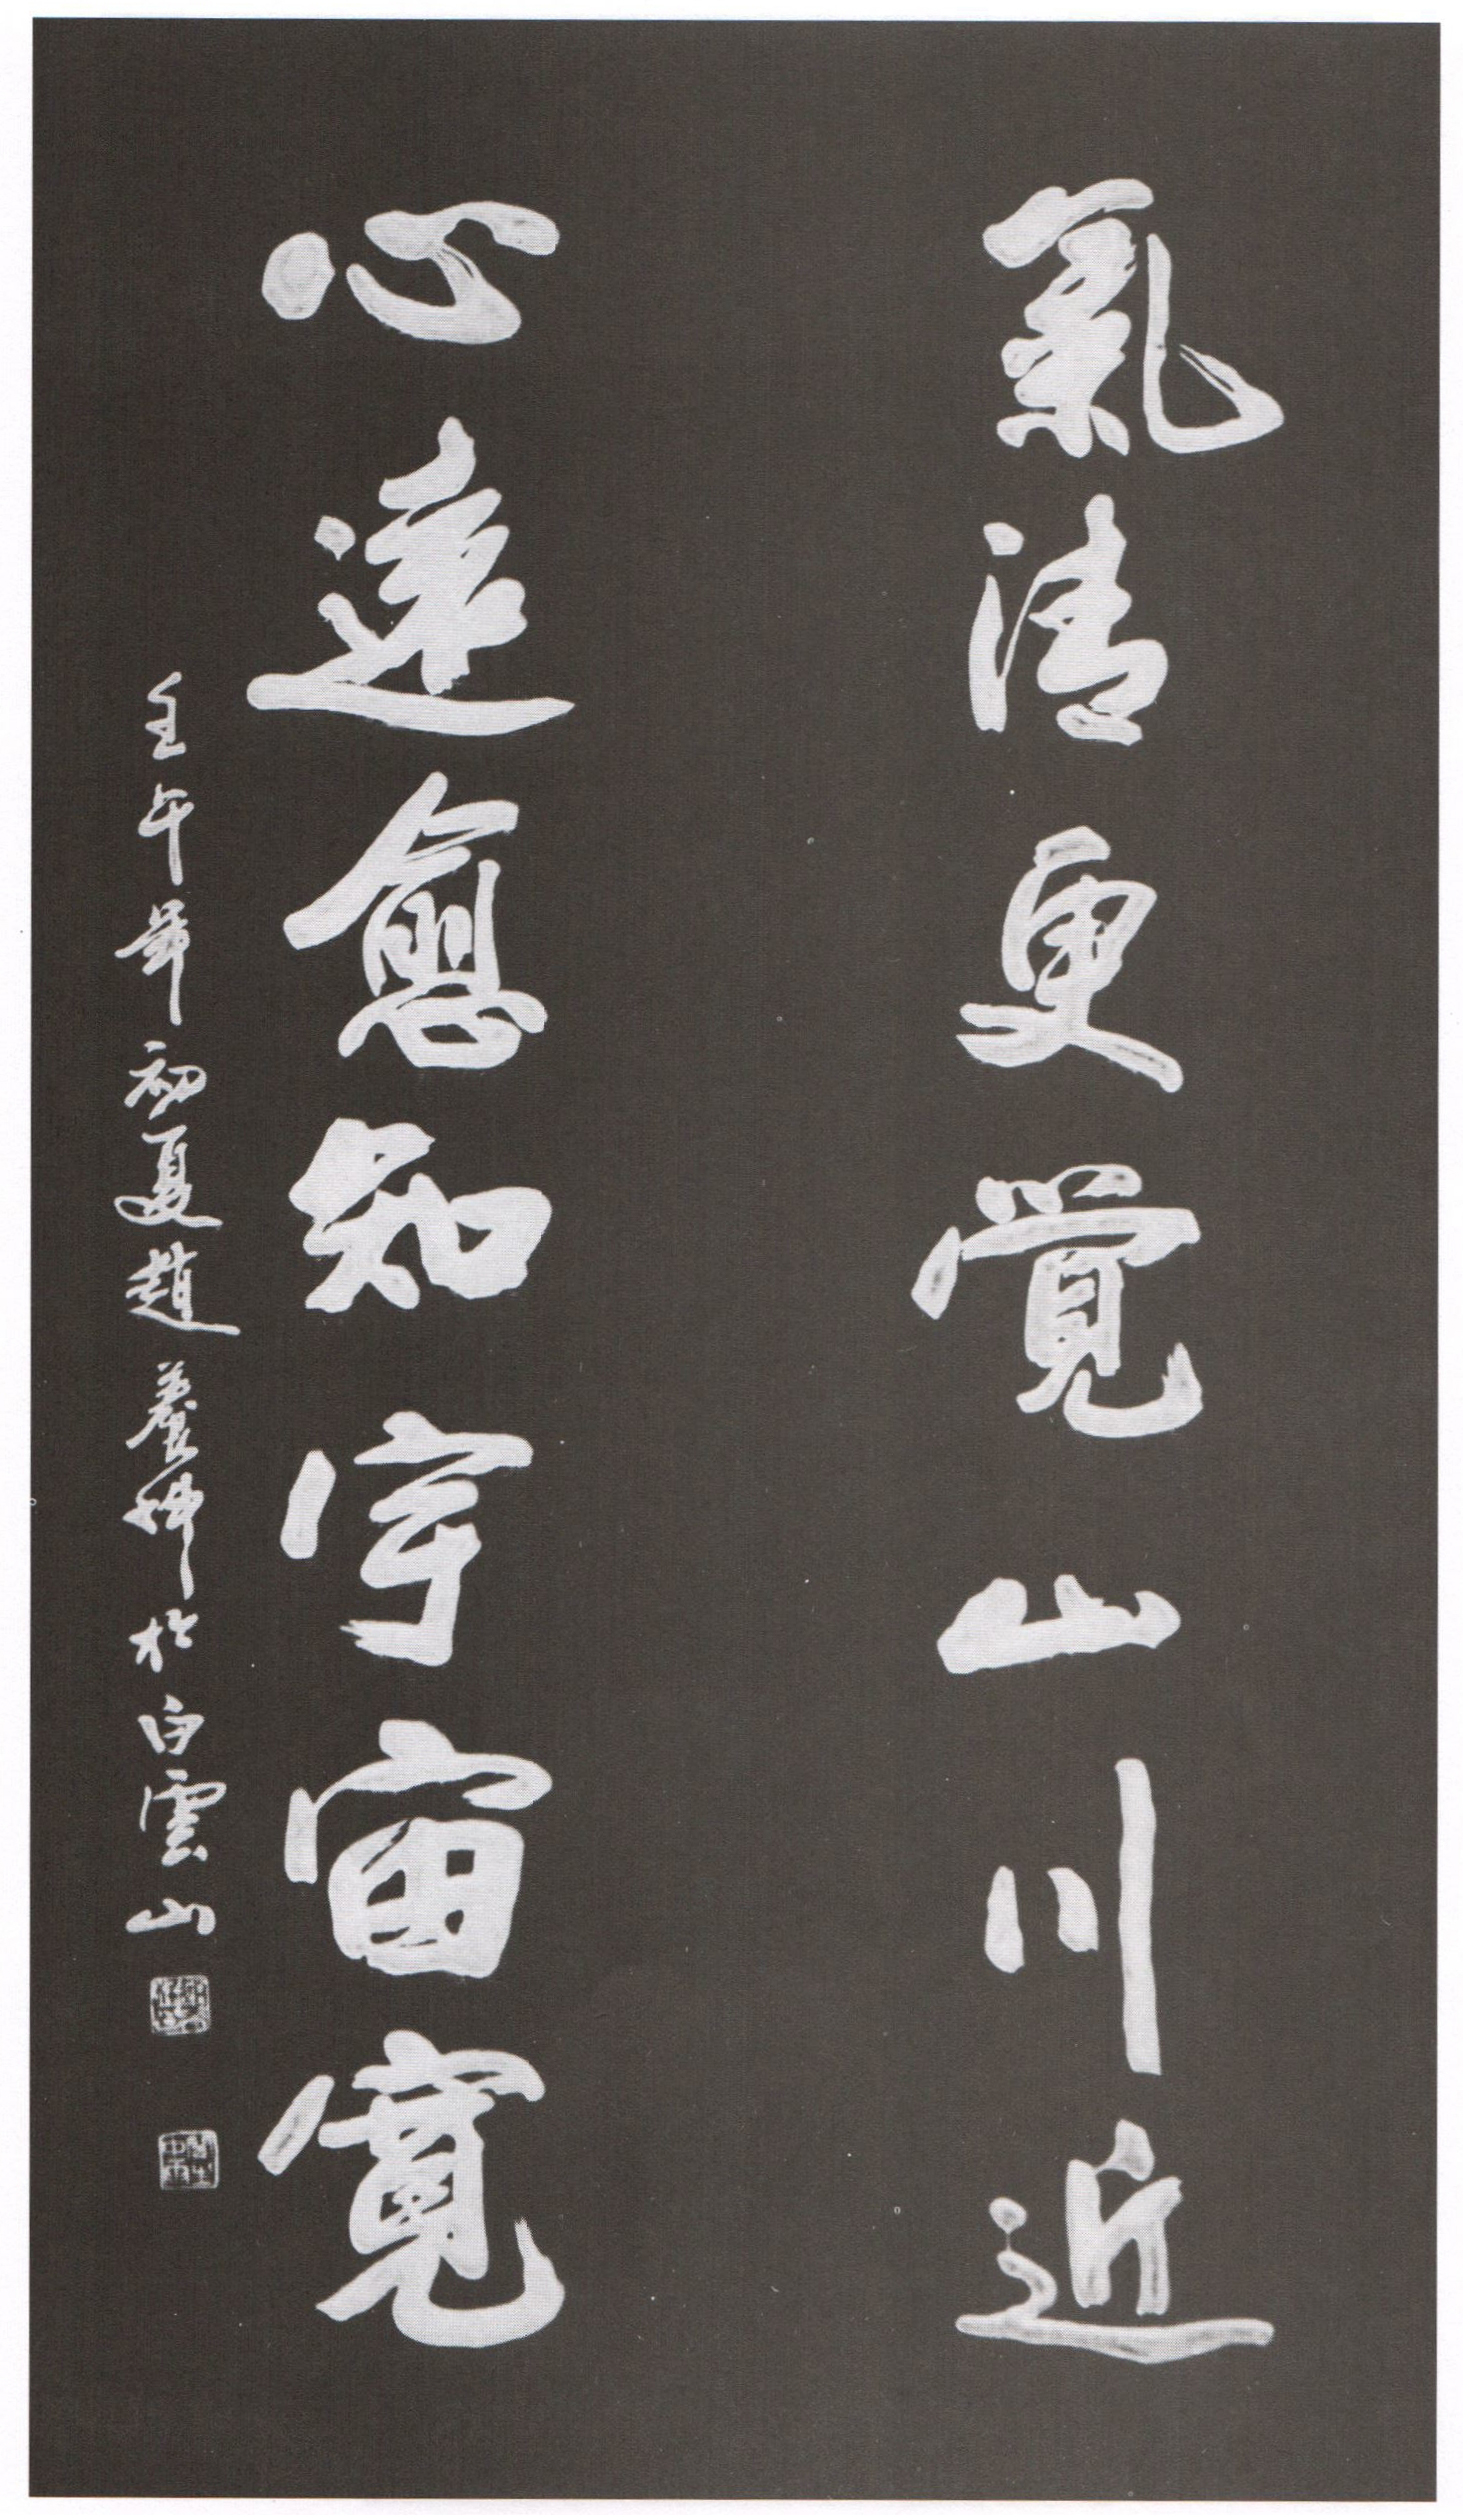 氣清更覺山川近
心遠愈知宇宙寬
壬午年初夏趙養科於白雲山